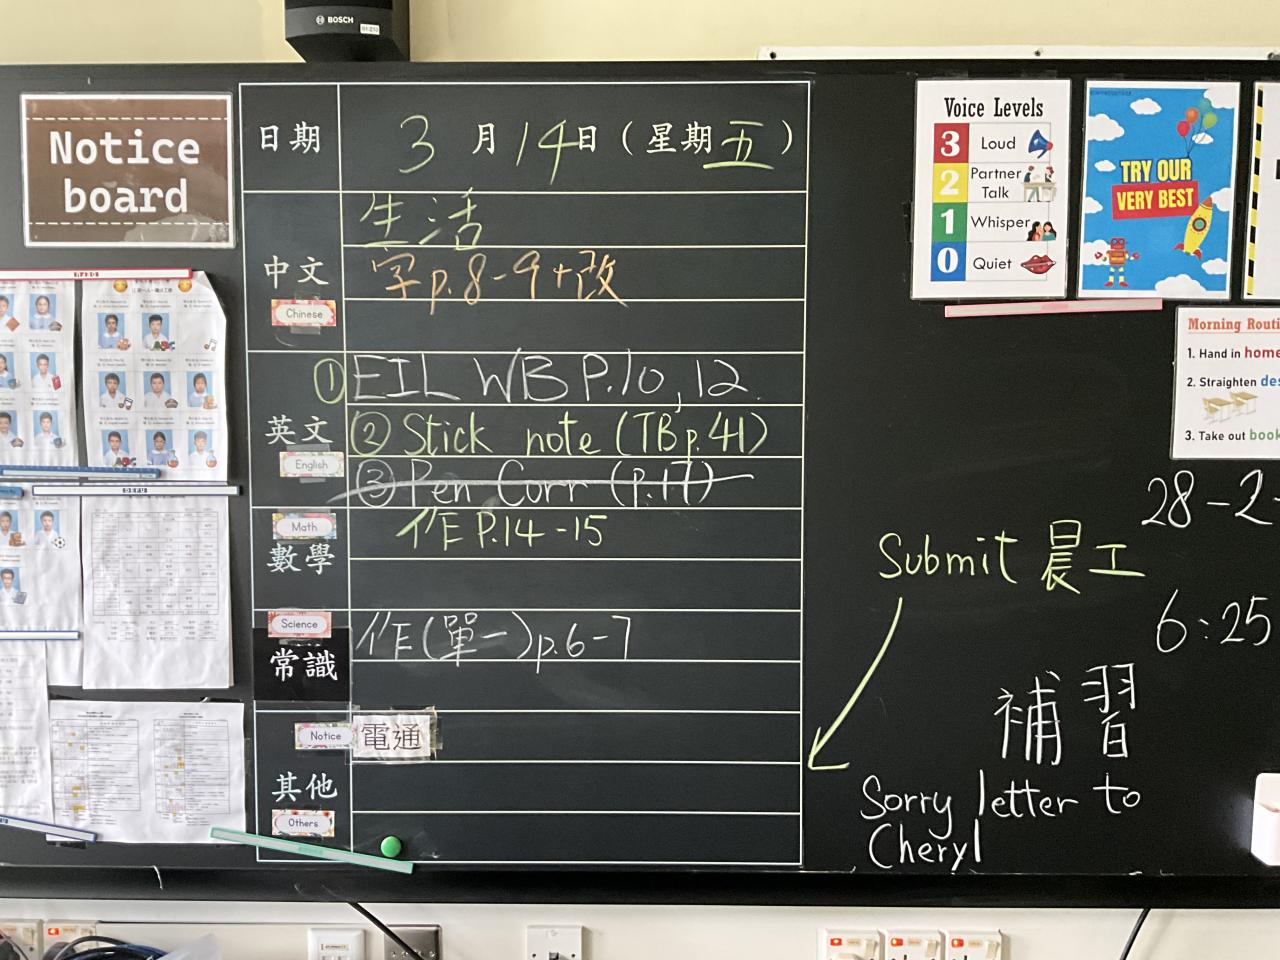 BOSCH
Notice
board
日期 3月14日（星期五）
生活
中文 字p.8-9+改
Chinese
① EIL WB P.10, 12.
英文 ② Stick note (TB p.41)
English
③ Pen Corr (p.17)
Math 作 P.14-15
數學
Science 作(單一)p.6-7
常識
Notice 電通
其他
Others
Voice Levels
3 Loud
2 Partner
Talk
1 Whisper
0 Quiet
TRY OUR
VERY BEST
Morning Routi
1. Hand in home
2. Straighten des
3. Take out book
28-2-
Submit 晨工
6:25
補習
Sorry letter to
Cheryl